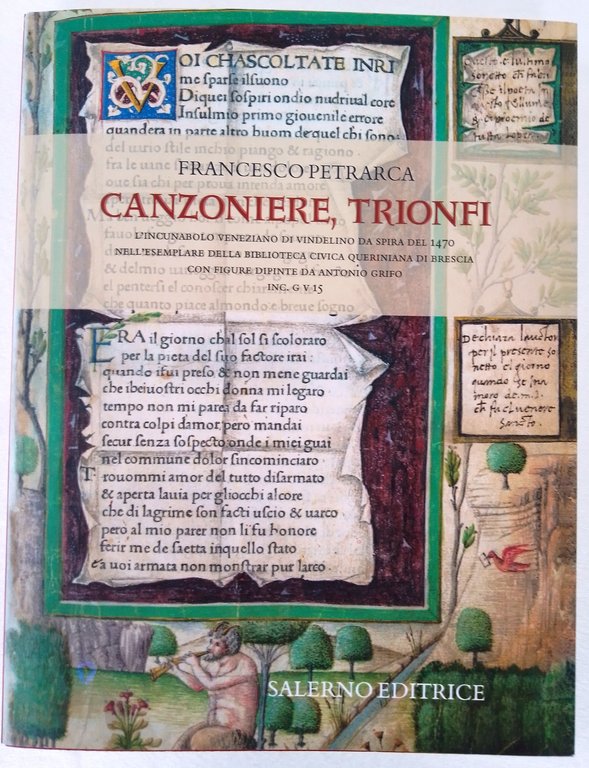 VOI CHASCOLTATE INRI
me sparse il suono
Di quei sospiri ondio nudriual core
In sulmio primo giouenile errore
quandera in parte altro huom de quel chi sono
del uario stile inchio piango & ragiono
fra le uane
oue sia chi per proua intenda amore
FRANCESCO PETRARCA
CANZONIERE, TRIONFI
L'INCUNABOLO VENEZIANO DI VINDELINO DA SPIRA DEL 1470
NELL'ESEMPLARE DELLA BIBLIOTECA CIVICA QUERINIANA DI BRESCIA
CON FIGURE DIPINTE DA ANTONIO GRIFO
INC. G V 15
& del mio
el pentersi el conoscer chiar
che quanto piace al mondo e breue sogno
ERA il giorno chal sol si scoloraro
per la pieta del suo factore irai:
quando ifui preso & non mene guardai
che ibeiuostri occhi donna mi legaro
tempo non mi parea da far riparo
contra colpi damor, pero mandai
secur senza sospecto onde i miei guai
nel commune dolor sincominciaro
Trouommi amor del tutto disarmato
& aperta lauia per gliocchi alcore
che di lagrime son facti uscio & uarco
però al mio parer non li fu honore
ferir me de saetta inquello stato
e a uoi armata non monstrar pur larco
Questo e lultimo
sonetto
De chiara lauctor
per il presente so
netto el giorno
quando se ina
moro de m. l.
ch fu el uenere
Sancto.
SALERNO EDITRICE